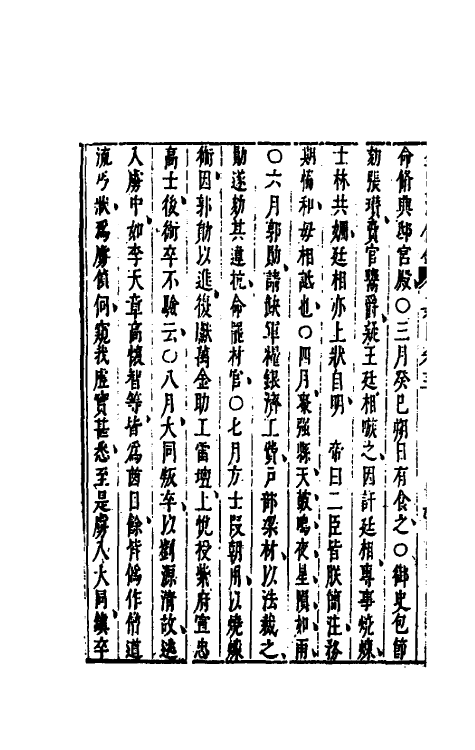 命脩興邸宮殿〇三月癸巳朔日有食之〇御史包節
劾張瓚費官鬻爵疑王廷相嗾之因訐廷相專事燒煉
士林共嫺廷相亦上狀自明　帝曰二臣皆朕簡注務
期脩和毋相詆也〇四月棗強縣天鼓鳴夜星隕如雨
〇六月郭勛請缺軍糧銀濟工費戶部梁材以法裁之
勛遂劾其違抗命罷材官〇七月方士叚朝用以燒煉
術因郭勛以進復獻萬金助工雷壇上悅授紫府宣忠
高士後術卒不驗云〇八月大同叛卒以劉源清故逃
入虜中如李天章高懷智等皆爲酋目餘皆偽作僧道
流丐狀爲虜偵伺窺我虛實甚悉至是虜入大同鎮卒